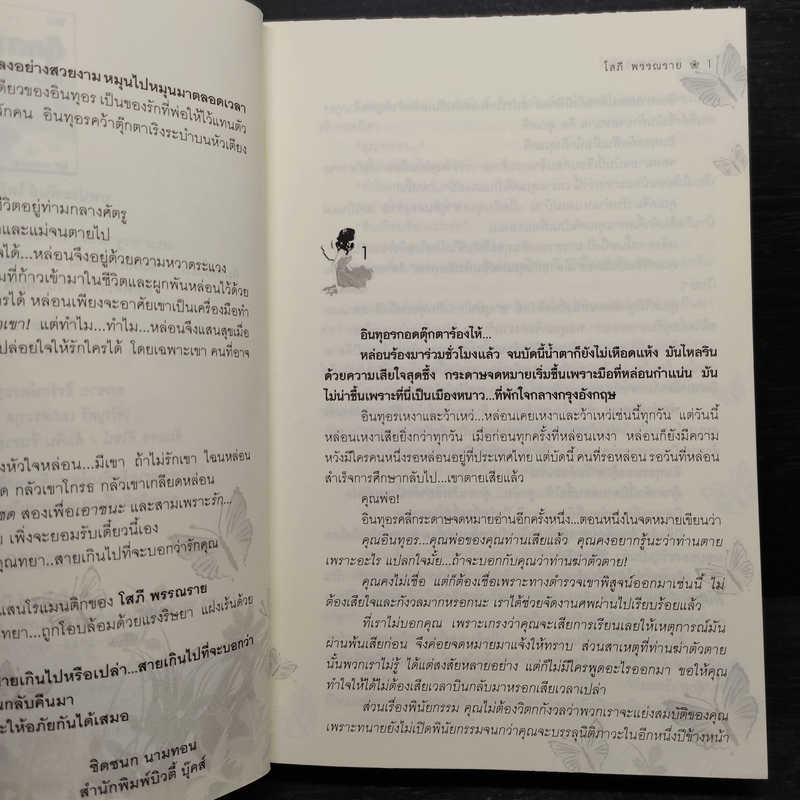 ลงอย่างสวยงาม หมุนไปหมุนมาตลอดเวลา
ดียวของอินทุอร เป็นของรักที่พ่อให้ไว้แทนตัว
รักคน อินทุอรคว้าตุ๊กตาเริงระบำบนหัวเตียง
ชีวิตอยู่ท่ามกลางศัตรู
และแม่จนตายไป
ได้...หล่อนจึงอยู่ด้วยความหวาดระแวง
มที่ก้าวเข้ามาในชีวิตและผูกพันหล่อนไว้ด้วย
ครได้ หล่อนเพียงจะอาศัยเขาเป็นเครื่องมือทำ
เขา! แต่ทำไม...ทำไม...หล่อนจึงแสนสุขเมื่อ
ปล่อยใจให้รักใครได้ โดยเฉพาะเขา คนที่อาจ
งหัวใจหล่อน...มีเขา ถ้าไม่รักเขา ไฉนหล่อน
ด กลัวเขาโกรธ กลัวเขาเกลียดหล่อน
สองเพื่อเอาชนะ และสามเพราะรัก...
เพิ่งจะยอมรับเดี๋ยวนี้เอง
คุณทยา...สายเกินไปที่จะบอกว่ารักคุณ
แสนโรแมนติกของ โสภี พรรณราย
ทยา...ถูกโอบล้อมด้วยแรงริษยา แฝงเร้นด้วย
ายเกินไปหรือเปล่า...สายเกินไปที่จะบอกว่า
นกลับคืนมา
ะให้อภัยกันได้เสมอ
ชิดชนก นามทอน
สำนักพิมพ์บิวตี้ บุ๊คส์
โสภี พรรณราย ❀ 1
1
อินทุอรกอดตุ๊กตาร้องไห้...
หล่อนร้องมาร่วมชั่วโมงแล้ว จนบัดนี้น้ำตาก็ยังไม่เหือดแห้ง มันไหลริน
ด้วยความเสียใจสุดซึ้ง กระดาษจดหมายเริ่มชื้นเพราะมือที่หล่อนกำแน่น มัน
ไม่น่าชื้นเพราะที่นี่เป็นเมืองหนาว...ที่พักใจกลางกรุงอังกฤษ
อินทุอรเหงาและว้าเหว่...หล่อนเคยเหงาและว้าเหว่เช่นนี้ทุกวัน แต่วันนี้
หล่อนเหงาเสียยิ่งกว่าทุกวัน เมื่อก่อนทุกครั้งที่หล่อนเหงา หล่อนก็ยังมีความ
หวังมีใครคนหนึ่งรอหล่อนอยู่ที่ประเทศไทย แต่บัดนี้ คนที่รอหล่อน รอวันที่หล่อน
สำเร็จการศึกษากลับไป...เขาตายเสียแล้ว
คุณพ่อ!
อินทุอรคลี่กระดาษจดหมายอ่านอีกครั้งหนึ่ง...ตอนหนึ่งในจดหมายเขียนว่า
คุณอินทุอร...คุณพ่อของคุณท่านเสียแล้ว คุณคงอยากรู้นะว่าท่านตาย
เพราะอะไร แปลกใจมั้ย...ถ้าจะบอกกับคุณว่าท่านฆ่าตัวตาย!
คุณคงไม่เชื่อ แต่ก็ต้องเชื่อเพราะทางตำรวจเขาพิสูจน์ออกมาเช่นนี้ ไม่
ต้องเสียใจและกังวลมากหรอกนะ เราได้ช่วยจัดงานศพผ่านไปเรียบร้อยแล้ว
ที่เราไม่บอกคุณ เพราะเกรงว่าคุณจะเสียการเรียนเลยให้เหตุการณ์มัน
ผ่านพ้นเสียก่อน จึงค่อยจดหมายมาแจ้งให้ทราบ ส่วนสาเหตุที่ท่านฆ่าตัวตาย
นั้นพวกเราไม่รู้ ได้แต่สงสัยหลายอย่าง แต่ก็ไม่มีใครพูดอะไรออกมา ขอให้คุณ
ทำใจให้ได้ไม่ต้องเสียเวลาบินกลับมาหรอกเสียเวลาเปล่า
ส่วนเรื่องพินัยกรรม คุณไม่ต้องวิตกกังวลว่าพวกเราจะแย่งสมบัติของคุณ
เพราะทนายยังไม่เปิดพินัยกรรมจนกว่าคุณจะบรรลุนิติภาวะในอีกหนึ่งปีข้างหน้า